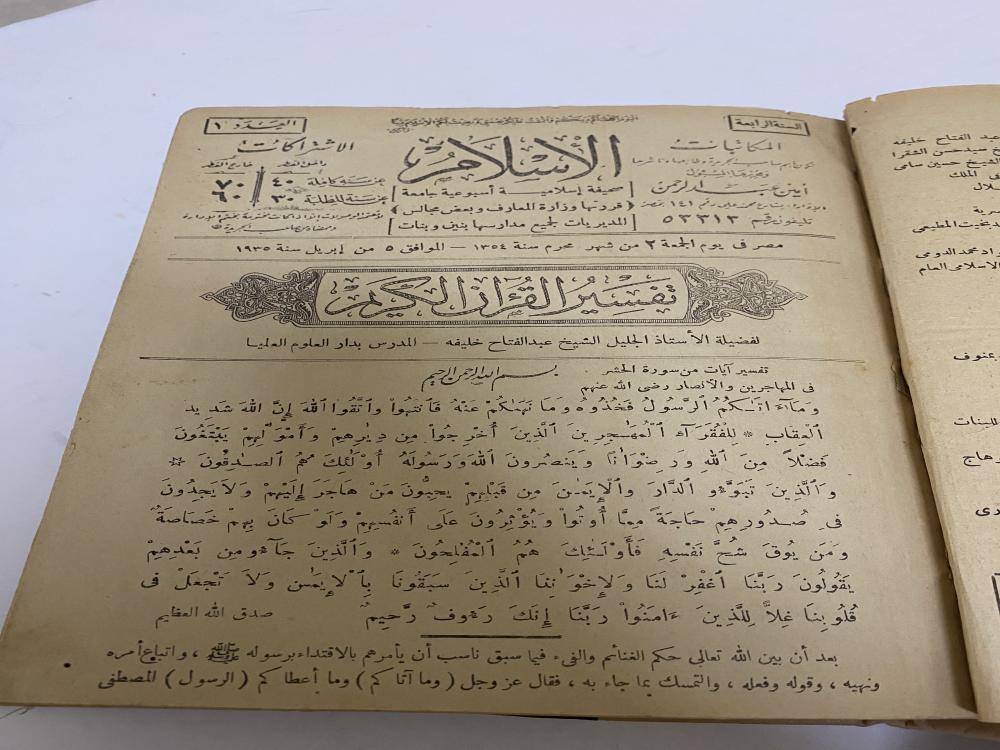 السنة الرابعة
العدد ١
المكاتبات
أمين عبد الرحمن
تليفون رقم ٥٣٣١٣
الإسلام
صحيفة إسلامية أسبوعية جامعة
قررتها وزارة المعارف وبعض مجالس
المديريات لجميع مدارسها بنين وبنات
الاشتراكات
داخل القطر خارج القطر
عن سنة كاملة ٤٠ ٧٠
عن سنة للطلبة ٣٠ ٦٠
مصر فى يوم الجمعة ٢ من شهر محرم سنة ١٣٥٤ — الموافق ٥ من إبريل سنة ١٩٣٥
تفسير القرآن الكريم
لفضيلة الأستاذ الجليل الشيخ عبدالفتاح خليفه — المدرس بدار العلوم العليا
تفسير آيات من سورة الحشر
فى المهاجرين والأنصار رضى الله عنهم
بسم الله الرحمن الرحيم
وَمَآءَ اتَىٰكُمُ الرَّسُولُ فَخُذُوهُ وَمَا نَهَىٰكُمْ عَنْهُ فَانتَهُواْ وَاتَّقُواْ اللهَ إِنَّ اللهَ شَدِيدُ
الْعِقَابِ * لِلْفُقَرَآءِ الْمُهَـٰجِرِينَ الَّذِينَ أُخْرِجُواْ مِن دِيَـٰرِهِمْ وَأَمْوَٰلِهِمْ يَبْتَغُونَ
فَضْلًا مِنَ اللهِ وَرِضْوَٰنًا وَيَنصُرُونَ اللهَ وَرَسُولَهُ أُوْلَـٰئِكَ هُمُ الصَّـٰدِقُونَ *
وَالَّذِينَ تَبَوَّءُو الدَّارَ وَالْإِيمَـٰنَ مِن قَبْلِهِمْ يُحِبُّونَ مَنْ هَاجَرَ إِلَيْهِمْ وَلَا يَجِدُونَ
فِى صُدُورِهِمْ حَاجَةً مِمَّا أُوتُواْ وَيُؤْثِرُونَ عَلَى أَنْفُسِهِمْ وَلَوْ كَانَ بِهِمْ خَصَاصَةٌ
وَمَن يُوقَ شُحَّ نَفْسِهِ فَأُوْلَـٰئِكَ هُمُ الْمُفْلِحُونَ * وَالَّذِينَ جَآءُو مِن بَعْدِهِمْ
يَقُولُونَ رَبَّنَا اغْفِرْ لَنَا وَلِإِخْوَٰنِنَا الَّذِينَ سَبَقُونَا بِالْإِيمَـٰنِ وَلَا تَجْعَلْ فى
قُلُوبِنَا غِلًّا لِلَّذِينَ ءَامَنُواْ رَبَّنَا إِنَّكَ رَءُوفٌ رَّحِيمٌ صدق الله العظيم
بعد أن بين الله تعالى حكم الغنائم والفىء فيما سبق ناسب أن يأمرهم بالاقتداء برسوله ﷺ ، واتباع أمره
ونهيه ، وقوله وفعله ، والتمسك بما جاء به ، فقال عز وجل ( وما آتاكم ) وما أعطاكم ( الرسول ) المصطفى
عبد الفتاح خليفه
سيد حسن الشقرا
الشيخ حسين سامى
الملك
بخيت المطيعى
محمد الدومى
الاسلامى العام
للبنات